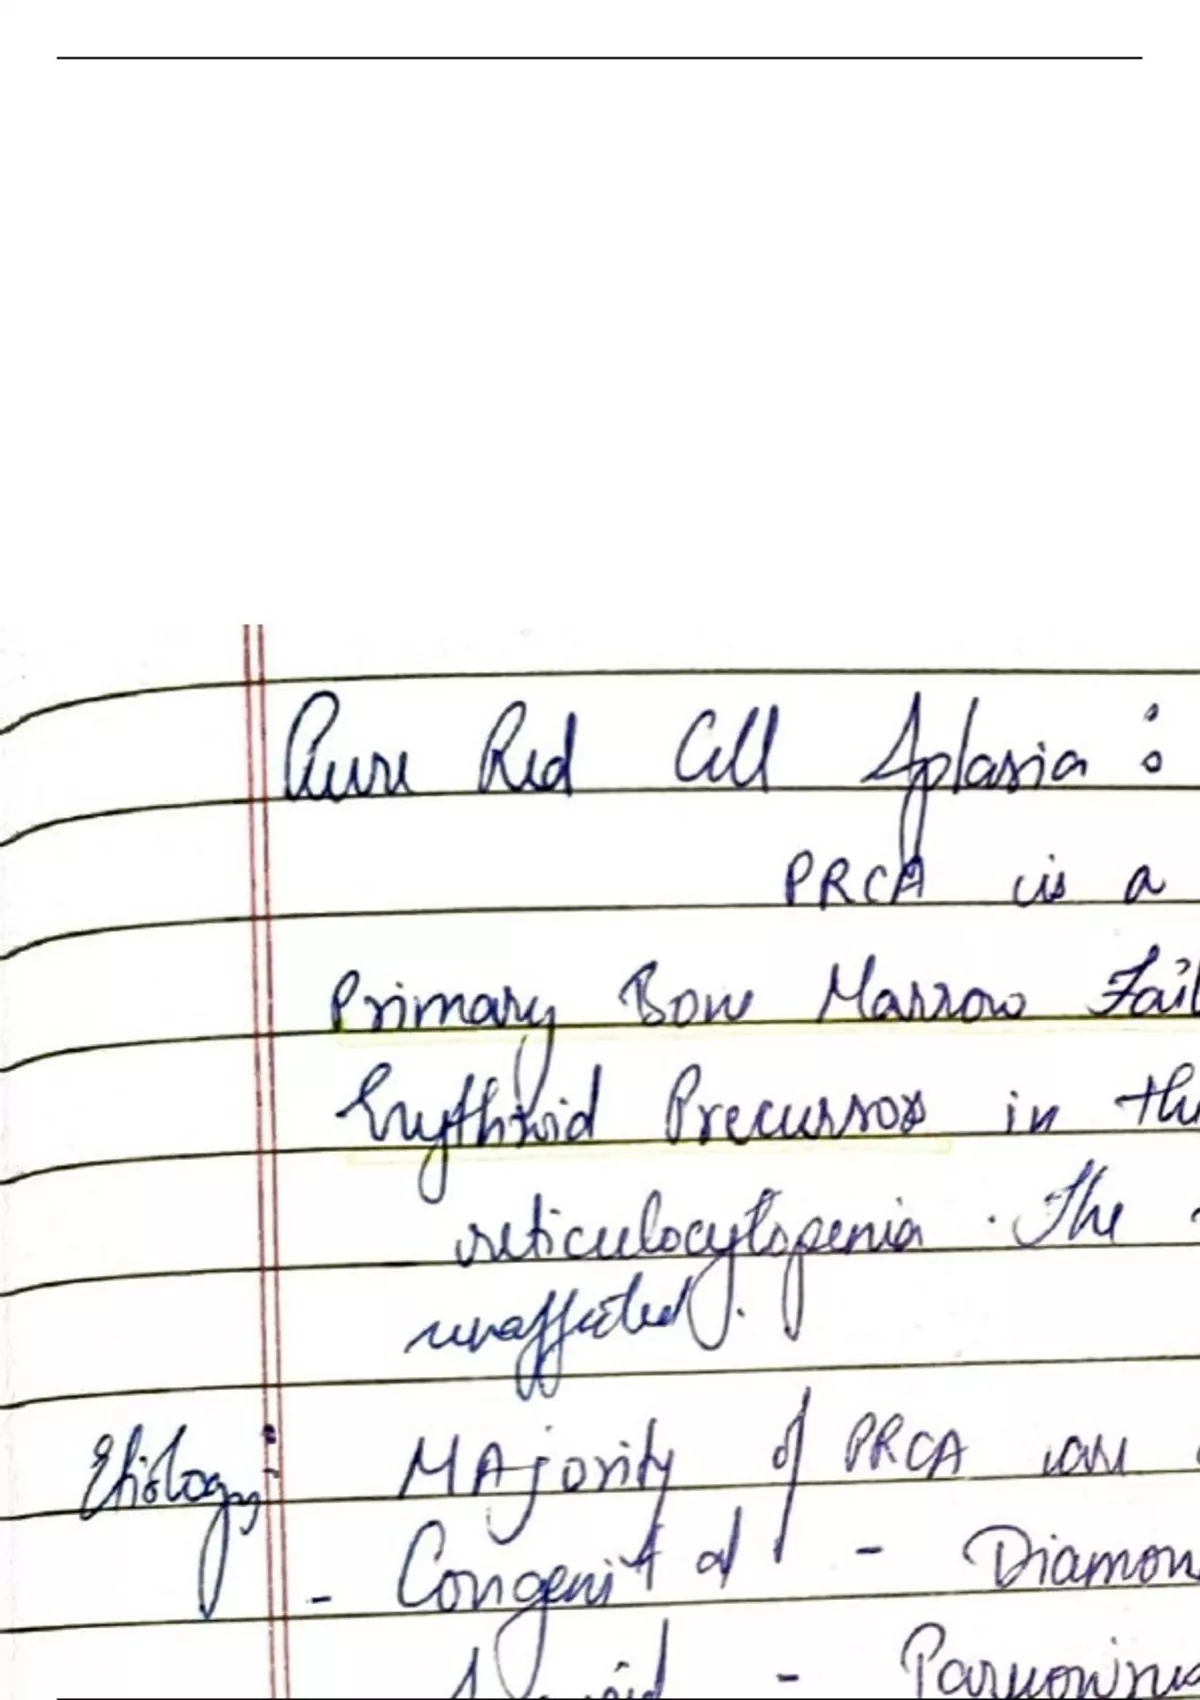 Pure Red Cell Aplasia :
PRCA is a
Primary Bone Marrow Fail
Erythroid Precursors in the
reticulocytopenia. The
unaffected.
Etiology: MAjority of PRCA are
- Congenital - Diamon
-